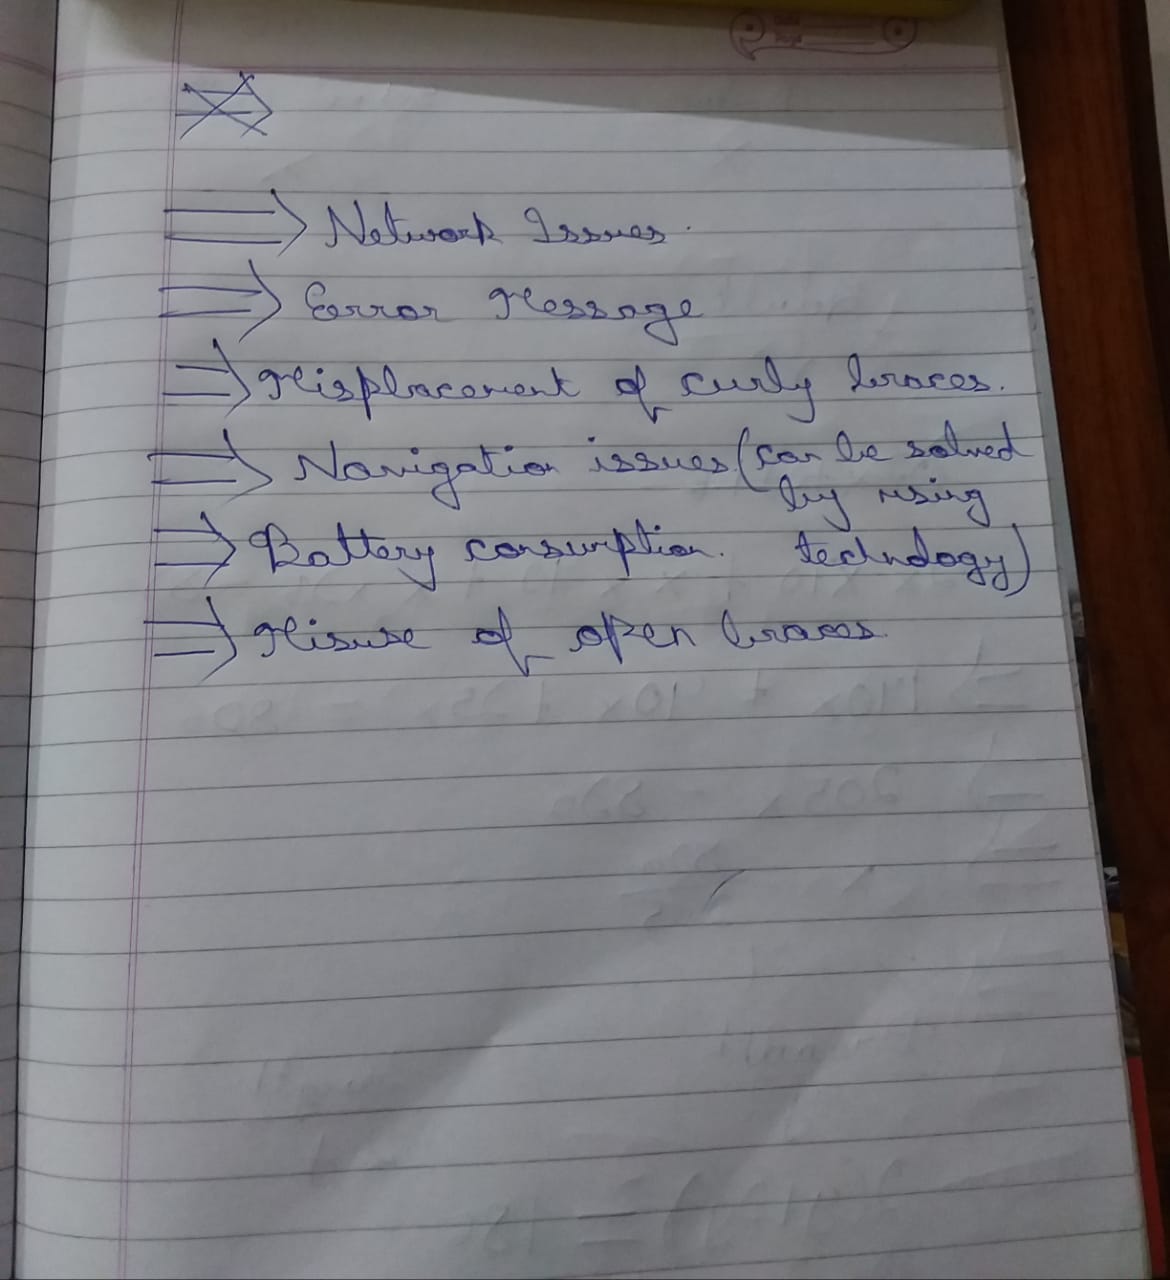 ⇒ Network Issues.
⇒ Error Message
⇒ Misplacement of curly braces.
⇒ Navigation issues (can be solved
by using
technology)
⇒ Battery consumption.
⇒ Misuse of open braces.